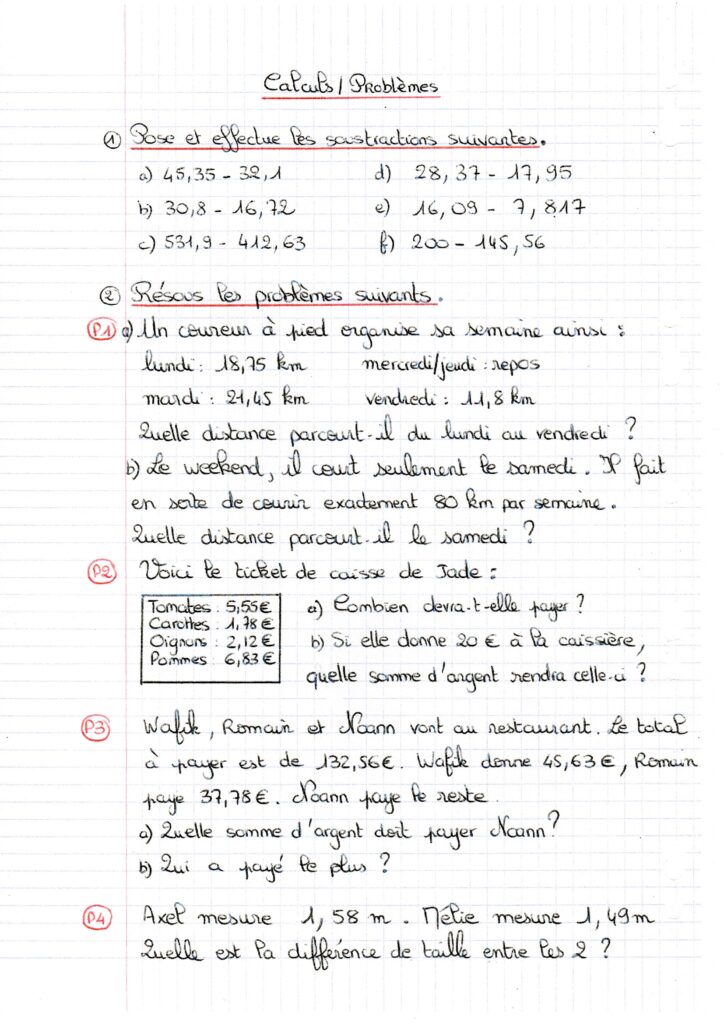 Calculs / Problèmes
① Pose et effectue les soustractions suivantes.
a) 45,35 - 32,1 d) 28,37 - 17,95
b) 30,8 - 16,72 e) 16,09 - 7,817
c) 531,9 - 412,63 f) 200 - 145,56
② Résous les problèmes suivants.
P1 a) Un coureur à pied organise sa semaine ainsi :
lundi : 18,75 km mercredi/jeudi : repos
mardi : 21,45 km vendredi : 11,8 km
Quelle distance parcourt-il du lundi au vendredi ?
b) Le weekend, il court seulement le samedi. Il fait
en sorte de courir exactement 80 km par semaine.
Quelle distance parcourt-il le samedi ?
P2 Voici le ticket de caisse de Jade :
Tomates : 5,55€
Carottes : 1,78€
Oignons : 2,12€
Pommes : 6,83€
a) Combien devra-t-elle payer ?
b) Si elle donne 20 € à la caissière,
quelle somme d'argent rendra celle-ci ?
P3 Wafik, Romain et Noann vont au restaurant. Le total
à payer est de 132,56€. Wafik donne 45,63€, Romain
paye 37,78€. Noann paye le reste.
a) Quelle somme d'argent doit payer Noann ?
b) Qui a payé le plus ?
P4 Axel mesure 1,58 m. Mélie mesure 1,49m
Quelle est la différence de taille entre les 2 ?